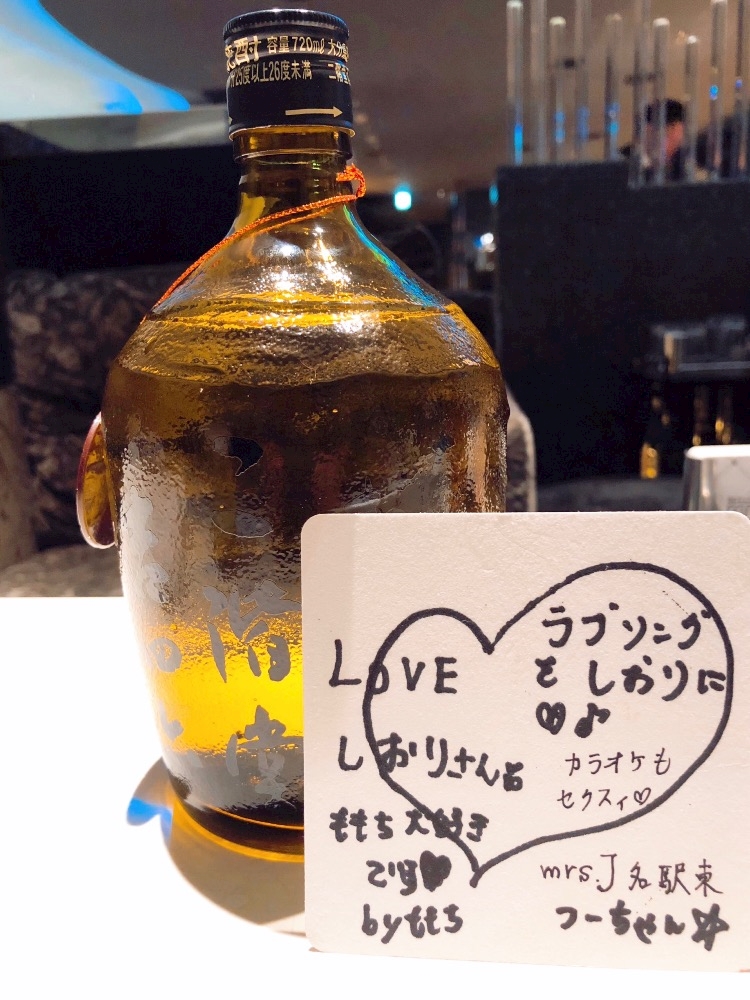 容量720ml
25度以上26度未満
二階堂
LOVE
しおりさん
ももち大好き
です♥
byももち
ラブソング
を しおりに
♡♪
カラオケも
セクスィ♡
mrs.J 名駅東
つーちゃん☆